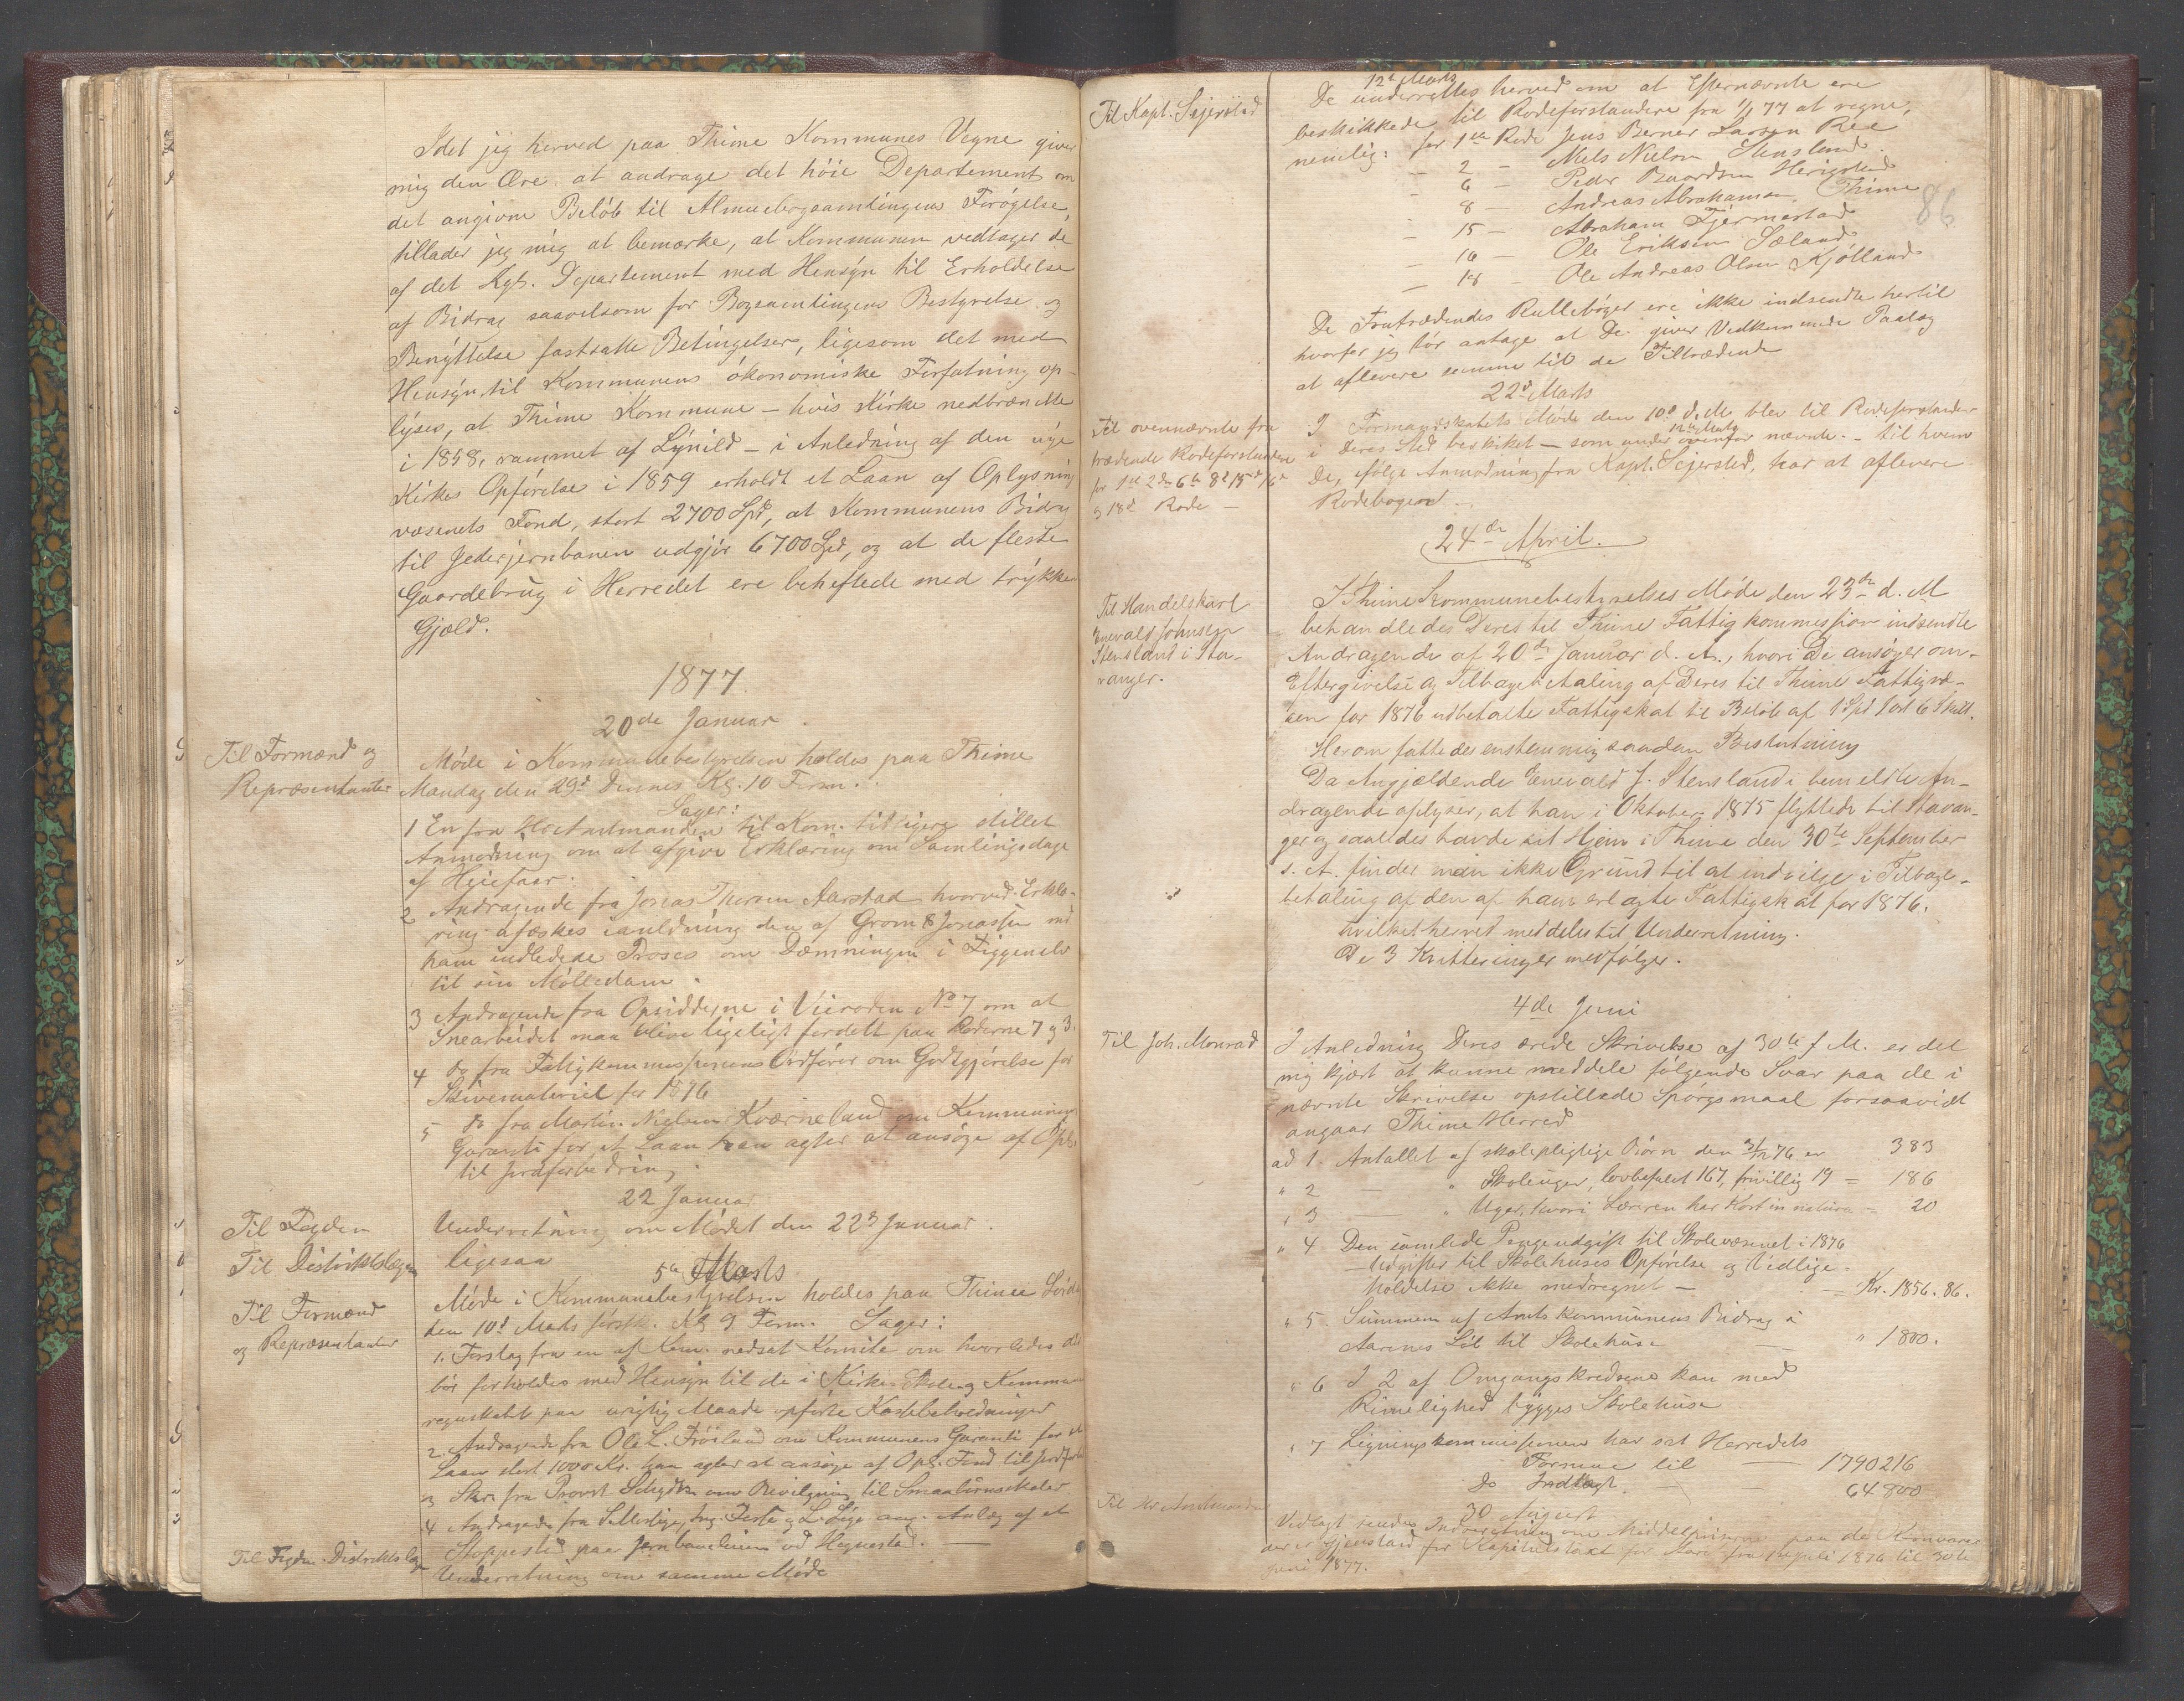 Idet jeg herved paa Thime Kommunes Vegne giver
mig den Ære at andrage det höie Departement om
det angivne Belöb til Almuebogsamlingens Forögelse,
tillader jeg mig at bemærke, at Kommunen vedtager de
af det Kgl. Departement med Hensyn til Erholdelse
af Bidrag saavelsom for Bogsamlingens Bestyrelse og
Benyttelse fastsatte Betingelser, ligesom det med
Hensyn til Kommunens ökonomiske Forfatning op-
lyses, at Thime Kommune – hvis Kirke nedbrændte
i 1858, rammet af Lynild – i Anledning af den nye
Kirkes Opförelse i 1859 erholdt et Laan af Oplysning
væsenets Fond, stort 2700 Spd, at Kommunens Bidrag
til Jederjernbanen udgjör 6700 Spd, og at de fleste
Gaardebrug i Herredet ere beheftede med trykken
Gjæld.
1877.
20de Januar.
Til Formænd og
Repræsentanter
Møde i Kommunebestyrelsen holdes paa Thime
Mandag den 29d Dennes Kl. 10 Form.
Sager:
1 En fra Hr Amtmanden til Kom. tidligere stillet
Anmodning om at afgive Erklæring om Samlingsdage
af Heiefaar.
2 Andragende fra Jonas Thorsen Aarstad hvorved Erklæ-
ring afæskes i anledning den af Grom & Jonassen mod
ham indledede Proses om Dæmningen i Figgenelv
til sin Mölledam.
3 Andragende fra Opsidderne i Veiroden No 7 om at
Snearbeidet maa blive ligeligt fordelt paa Roderne 7 og 3.
4 do fra Fattigkommissionens Ordförer om Godtgjörelse for
Skivemateriel for 1876
5 do fra Martin Nielsen Kværneland om Kommunens
Garanti for et Laan han agter at ansöge af Opl.
til Jordforbedring.
22 Januar
Til Fogden
Underretning om Mödet den 22d Januar.
Til Distriktslægen
ligesaa
5te Marts
Til Formænd
og Repræsentanter
Møde i Kommunebestyrelsen holdes paa Thime Lördag
den 10d Marts förstk. Kl 9 Form. Sager:
1. Forslag fra en af Kom. nedsat Komite om hvorledes det
bör forholdes med Hensyn til de i Kirke- Skole- og Kommune
regnskabet paa urigtig Maade opförte Kassebeholdninger
2. Andragende fra Ole L. Fröiland om Kommunens Garanti for et
Laan stort 1000 Kr. han agter at ansöge af Opl. Fond til Jordforbe
3 Skr. fra Provst om Bevilgning til Smaabörnsskoler
4 Andragende fra ang. Anlæg af et
Stoppested paa Jernbanelinien ved Hognestad.
Til Fogden Distriktslæge
Underretning om samme Møde
86
Til Kapt. Sejersted
12te Marts
De underrettes herved om at Efternævnte ere
beskikkede til Rodeforstandere fra 1/1 77 at regne,
nemlig: for 1ste Rode Jens Berner Larsen Ree
– 2 – Niels Nielsen Stensland.
– 6 – Peder Baardsen Herigstad
– 8 – Andreas Abrahamsen Thime
– 15 – Abraham Fjermestad
– 16 – Ole Eriksen Sæland
– 18 – Ole Andreas Olsen Kjölland
De Fratrædendes Rullebøger ere ikke indsendte hertil
hvorfor jeg tör antage at De giver Vedkommende Paalæg
at aflevere samme til de Tiltrædende
22d Marts
Til ovennævnte fra
trædende Rodeforstandere
for 1ste 2den 6te 8d 15d 16d
og 18d Rode –
I Formandskabets Møde den 10d d. M. blev til Rodeforstander
i deres Sted beskikket – som under 12te Marts ovenfor nævnte. – til hvem
De, ifølge Anmodning fra Kapt. Sejersted, har at aflevere
Rodebogen.
24de April.
Til Handelskarl
Enevald Johnsen
Stensland i Sta-
vanger.
I Thime Kommunebestyrelses Møde den 23de d. M
behandledes Deres til Thime Fattigkommission indsendte
Andragende af 20de Januar d. A., hvori De ansøger om
Eftergivelse og Tilbagebetaling af Deres til Thime Fattigvæ-
sen for 1876 udbetalte Fattigskat til Beløb af 1 Spd 1 ort 6 Skill.
Herom fattedes enstemmig saadan Beslutning
Da Angjældende Enevald J. Stensland i bemeldte An-
dragende oplyser, at han i Oktober 1875 flyttede til Stavan-
ger og saaledes havde sit Hjem i Thime den 30te September
s. A. finder man ikke Grund til at indvilge i Tilbage-
betaling af den af ham erlagte Fattigskat for 1876.
hvilket herved meddeles til Underretning.
De 3 Kvitteringer medfølger.
4de Juni
Til Joh. Monrad
I Anledning Deres ærede Skrivelse af 30te f. M. er det
mig kjært at kunne meddele følgende Svar paa de i
nævnte Skrivelse opstillede Spörgsmaal forsaavidt
angaar Thime Herred
ad 1. Antallet af skolepligtige Börn den 31/12 76 er 383
" 2 – " Skoleuger, lovbefalet 167, frivillig 19 = 186
" 3 – " Uger, hvori Læreren har Kost in natura = 20
" 4 Den samlede Pengeudgift til Skolevæsenet i 1876
– Udgifter til Skolehuses Opförelse og Vedlige-
holdelse ikke medregnet – = Kr. 1856.86.
" 5. Summen af Amtskommunens Bidrag i
Aarenes Löb til Skolehuse – " 1800.
" 6 I 2 af Omgangskredsene kan med
Rimelighed bygges Skolehuse
" 7 Ligningskommissionen har sat Herredets
Formue til – 1790216
do Indtægt. – 64800
30 August
Til Hr Amtmanden
Vedlagt sendes Indberetning om Middelpriserne paa de Kornvarer
der er Gjenstand for Kapitelstakt for fra 1 Juli 1876 til 30te
Juni 1877.